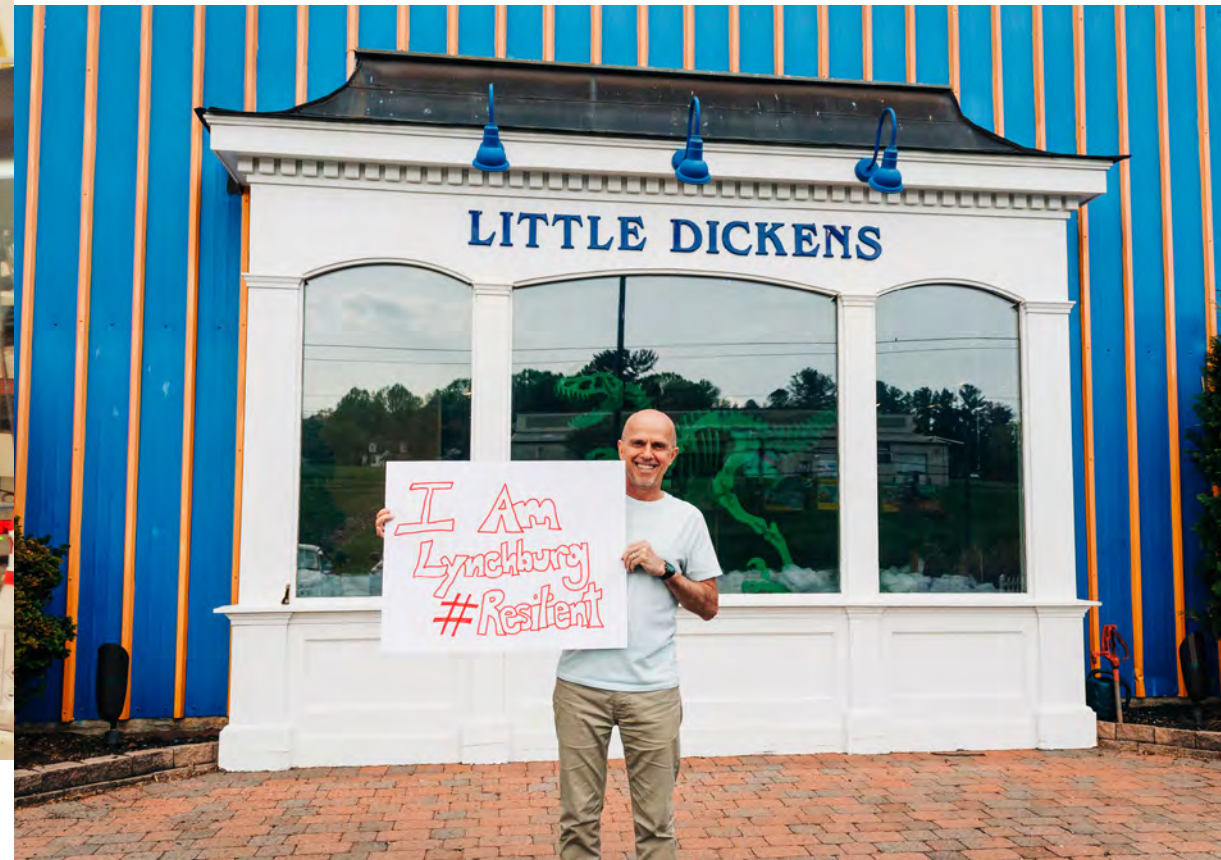 LITTLE DICKENS
I Am
Lynchburg
#Resilient